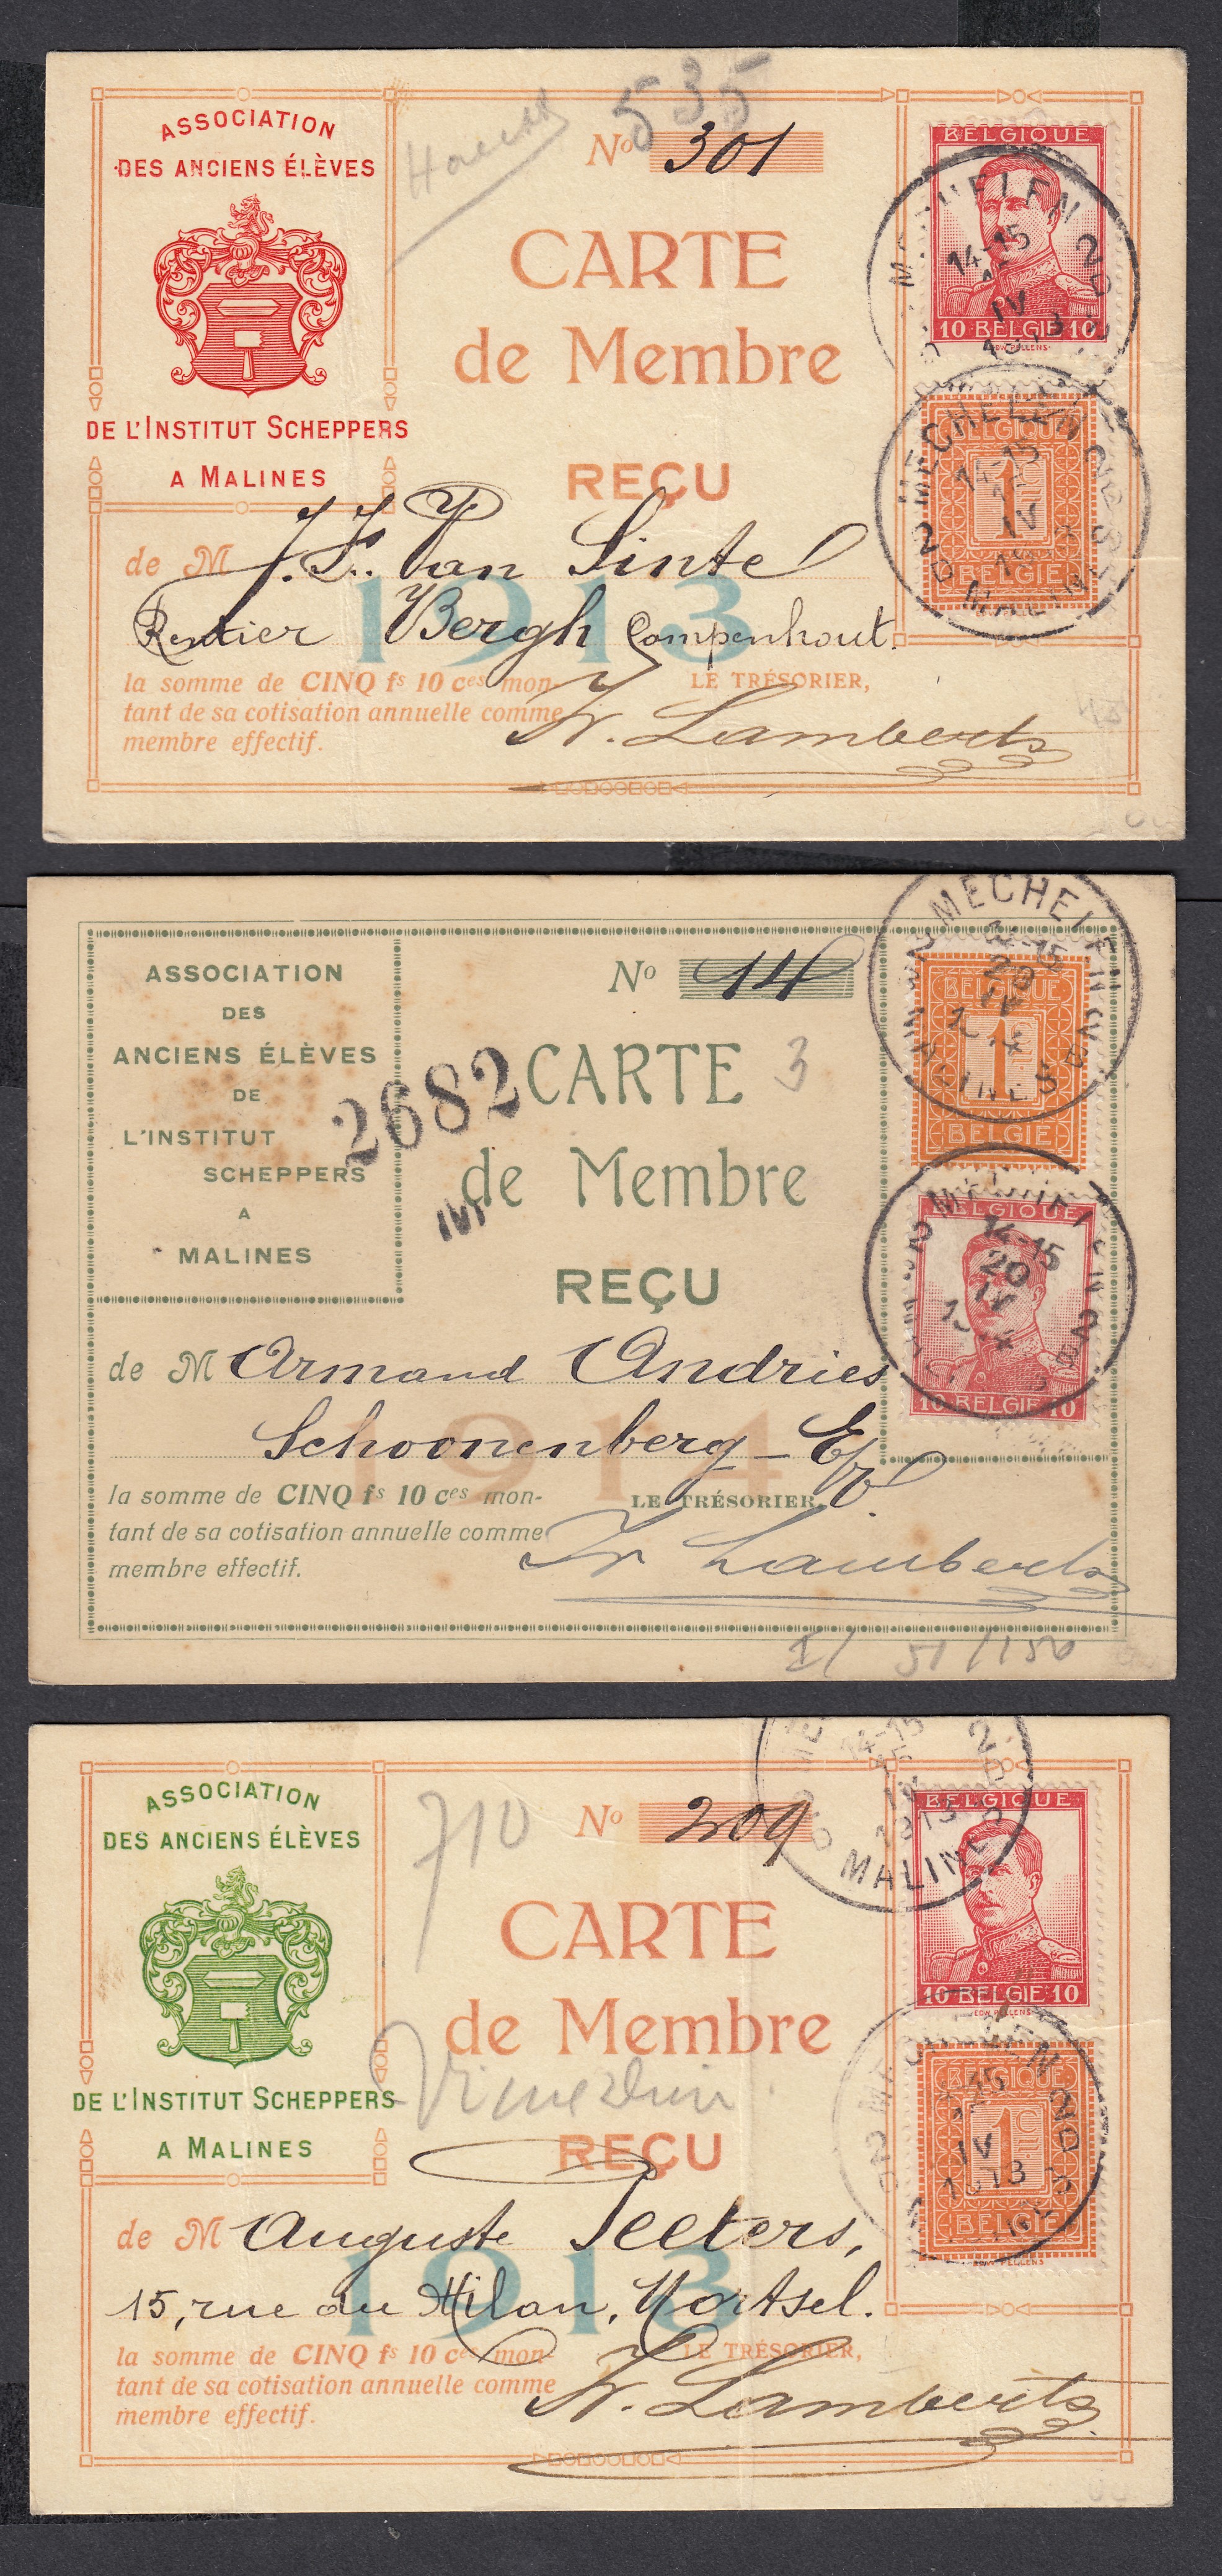 535
ASSOCIATION
DES ANCIENS ÉLÈVES
DE L'INSTITUT SCHEPPERS
A MALINES
Nº 301
CARTE
de Membre
REÇU
de M J. F. Van Sintel
Rentier Bergh Campenhout.
1913
la somme de CINQ fs 10 ces mon-
tant de sa cotisation annuelle comme
membre effectif.
LE TRÉSORIER,
Fr. Lamberts
BELGIQUE
10 BELGIE 10
MECHELEN 2
14-15
IV
1913
BELGIQUE
1
BELGIE
MECHELEN
14-15
IV
MALINES 2
ASSOCIATION
DES
ANCIENS ÉLÈVES
DE
L'INSTITUT
SCHEPPERS
A
MALINES
Nº 14
CARTE 3
2682
de Membre
REÇU
de M Armand Andries
Schoonenberg - Epp
1914
la somme de CINQ fs 10 ces mon-
tant de sa cotisation annuelle comme
membre effectif.
LE TRÉSORIER,
Fr Lamberts
51/150
MECHELEN
14-15
20
IV
MALINES
BELGIQUE
1
BELGIE
14-15
20
IV
BELGIQUE
10 BELGIE 10
ASSOCIATION
DES ANCIENS ÉLÈVES
DE L'INSTITUT SCHEPPERS
A MALINES
710
Nº 209
CARTE
de Membre
REÇU
de M Auguste Peeters,
15, rue du Milan, Mortsel.
1913
la somme de CINQ fs 10 ces mon-
tant de sa cotisation annuelle comme
membre effectif.
LE TRÉSORIER,
Fr. Lamberts
14-15
IV
1913
MALINES
BELGIQUE
10 BELGIE 10
BELGIQUE
1 C
BELGIE
IV
1913